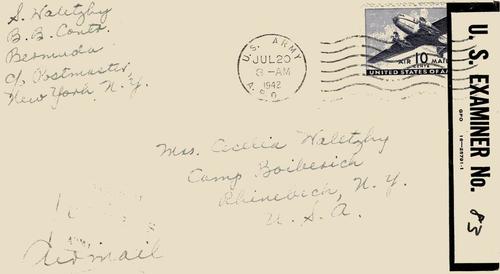 S. Waletzky
B. B. Contr.
Bermuda
c/o Postmaster
New York N.Y.
U.S. ARMY
JUL 20
3-AM
1942
A.P.O.
AIR 10 MAIL
CENTS
UNITED STATES OF A
U. S. EXAMINER No. 83
GPO 16-28781-1
Mrs. Cecelia Waletzky
Camp Boiberich
Rhinebeck, N.Y.
U.S.A.
Air mail